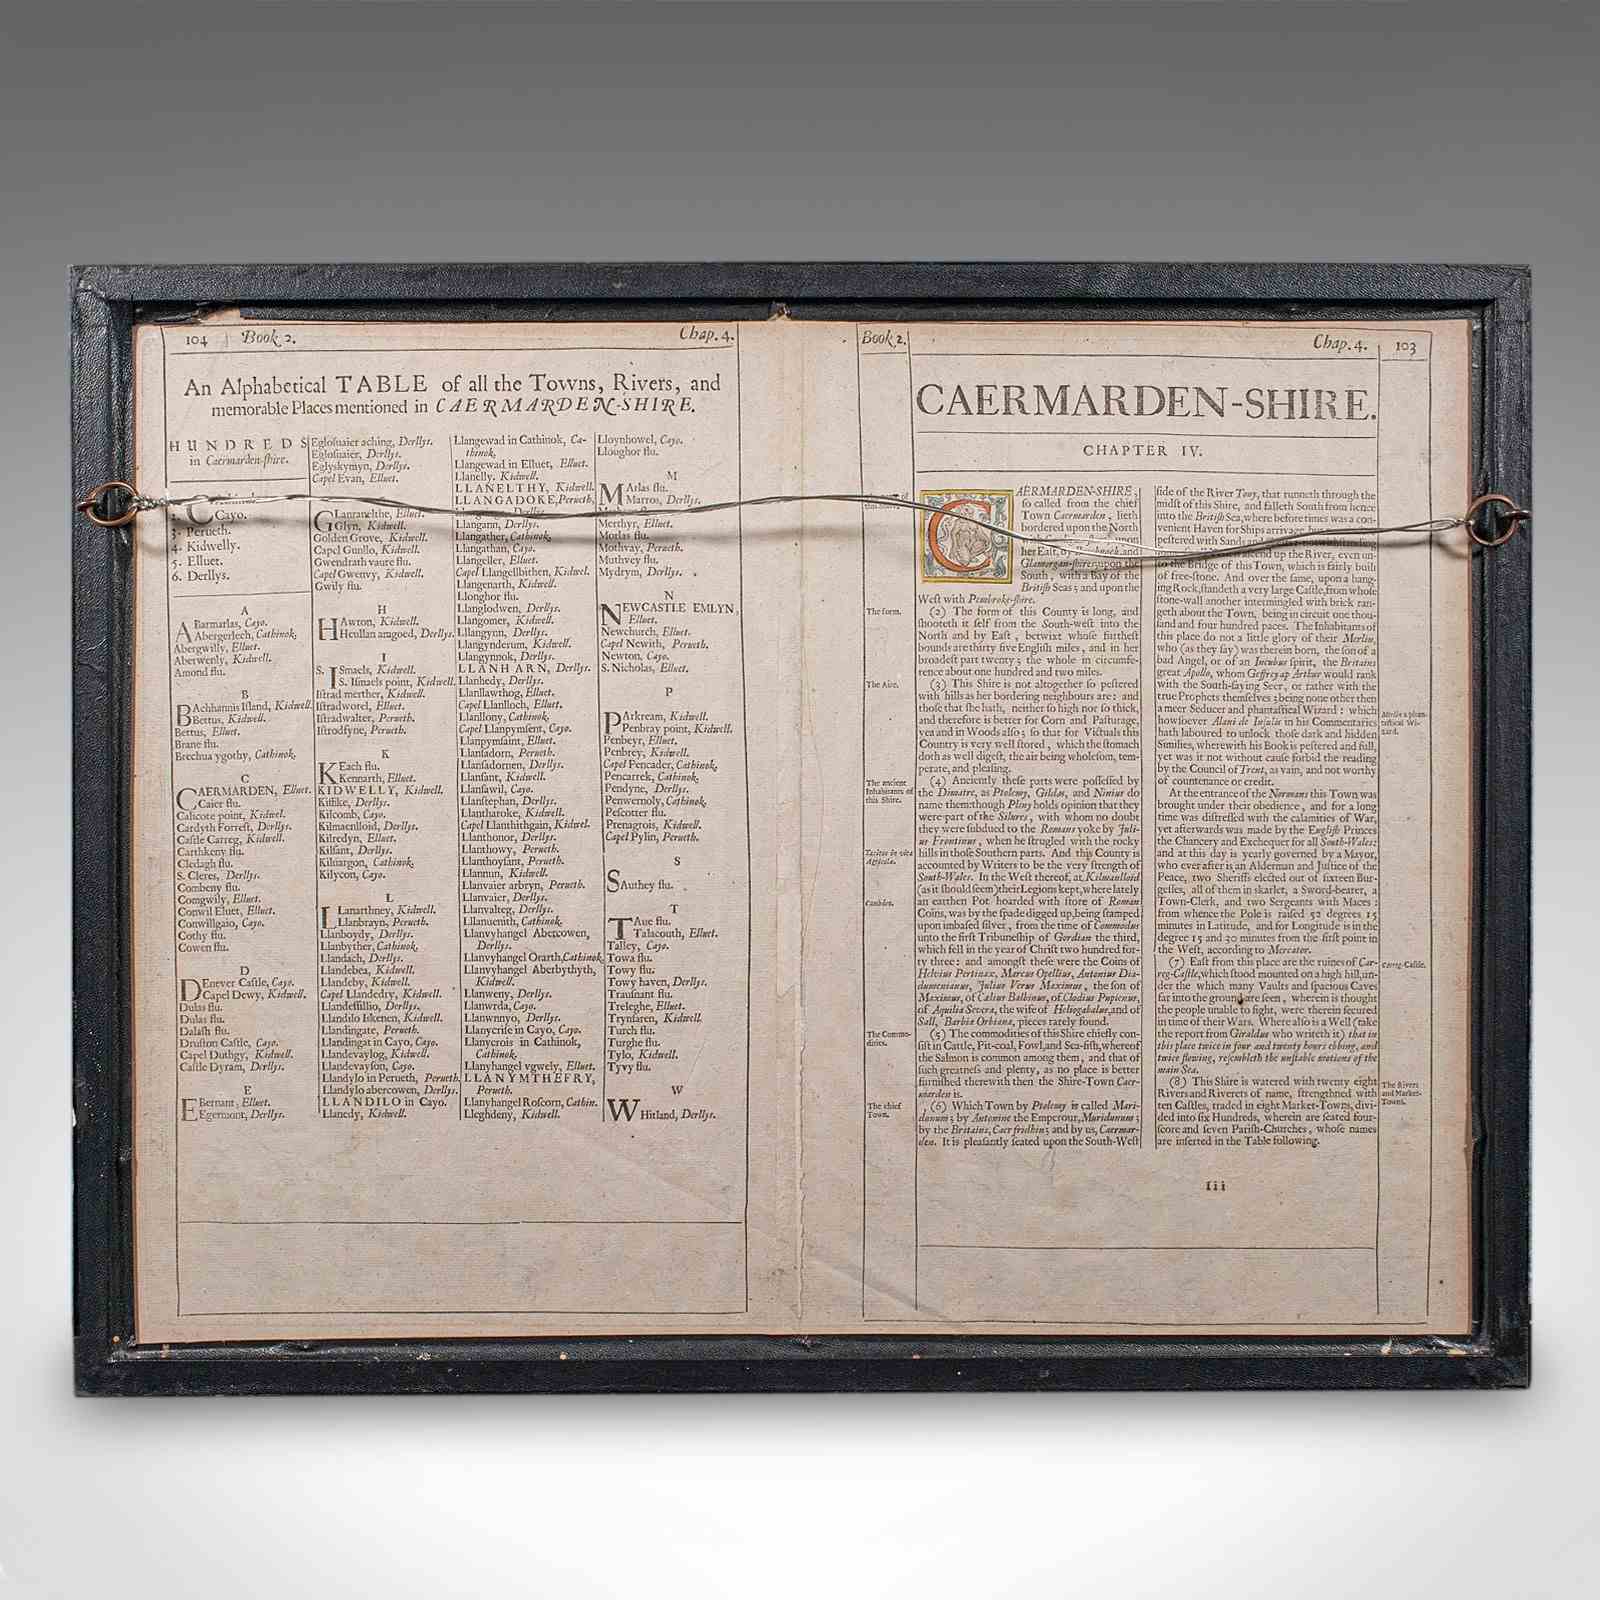 104 Book 2. Chap. 4.
An Alphabetical TABLE of all the Towns, Rivers, and
memorable Places mentioned in CAERMARDEN-SHIRE.
HUNDREDS
in Caermarden-shire.
Cayo.
3. Perueth.
4. Kidwelly.
5. Elluet.
6. Derllys.
A
ABarmarlas, Cayo.
Abergerlech, Cathinok.
Abergwilly, Elluet.
Aberwenly, Kidwell.
Amond flu.
B
BAchhannis Iſland, Kidwell.
Bettus, Kidwell.
Bettus, Elluet.
Brane flu.
Brechua ygothy, Cathinok.
C
CAERMARDEN, Elluet.
Caier flu.
Calicote point, Kidwel.
Cardyth Forreſt, Derllys.
Caſtle Carreg, Kidwell.
Carthkeny flu.
Cledagh flu.
S. Cleres, Derllys.
Combeny flu.
Comgwily, Elluet.
Conwil Eluet, Elluet.
Conwillgaio, Cayo.
Cothy flu.
Cowen flu.
D
DEnever Caſtle, Cayo.
Capel Dewy, Kidwell.
Dulas flu.
Dulas flu.
Dalaſh flu.
Druſlon Caſtle, Cayo.
Capel Duthgy, Kidwell.
Caſtle Dyram, Derllys.
E
EBernant, Elluet.
Egermont, Derllys.
Egloſuaier aching, Derllys.
Egloſuaier, Derllys.
Eglyskymyn, Derllys.
Capel Evan, Elluet.
GLanranelthe, Elluet.
Glyn, Kidwell.
Golden Grove, Kidwell.
Capel Gunllo, Kidwell.
Gwendrath vaure flu.
Capel Gwenvy, Kidwell.
Gwily flu.
H
HAwton, Kidwell.
Heullan amgoed, Derllys.
I
S. ISmaels, Kidwell.
S. Iſmaels point, Kidwell.
Iſtrad merther, Kidwell.
Iſtradworel, Elluet.
Iſtradwalter, Perueth.
Iſtrodfyne, Perueth.
K
KEach flu.
Kennarth, Elluet.
KIDWELLY, Kidwell.
Kiffike, Derllys.
Kilcomb, Cayo.
Kilmaenlloid, Derllys.
Kilredyn, Elluet.
Kilſant, Derllys.
Kiluargon, Cathinok.
Kilycon, Cayo.
L
LLanarthney, Kidwell.
Llanbrayn, Perueth.
Llanboydy, Derllys.
Llanbyther, Cathinok.
Llandach, Derllys.
Llandebea, Kidwell.
Llandeby, Kidwell.
Capel Llandedry, Kidwell.
Llandeſſillio, Derllys.
Llandilo Iſkenen, Kidwell.
Llandingate, Perueth.
Llandingat in Cayo, Cayo.
Llandevaylog, Kidwell.
Llandevayſon, Cayo.
Llandylo in Perueth, Perueth.
Llandylo abercowen, Derllys.
LLANDILO in Cayo.
Llanedy, Kidwell.
Llangewad in Cathinok, Ca-
thinok.
Llangewad in Elluet, Elluet.
Llanelly. Kidwell.
LLANELTHY, Kidwell.
LLANGADOKE, Perueth.
Llangann, Derllys.
Llangather, Cathinok.
Llangathan, Cayo.
Llangeller, Elluet.
Capel Llangellbithen, Kidwel.
Llangenarth, Kidwell.
Llonghor flu.
Llanglodwen, Derllys.
Llangomer, Kidwell.
Lllangynn, Derllys.
Llangynderum, Kidwell.
Llangynnok, Derllys.
LLANHARN, Derllys.
Llanhedy, Derllys.
Llanllawthog, Elluet.
Capel Llanlloch, Elluet.
Llanllony, Cathinok.
Capel Llanpymſent, Cayo.
Llanpymſaint, Elluet.
Llanſadorn, Perueth.
Llanſadornen, Derllys.
Llanſant, Kidwell.
Llanſawil, Cayo.
Llanſtephan, Derllys.
Llantharoke, Kidwell.
Capel Llanthithgain, Kidwel.
Llanthonor, Derllys.
Llanthowy, Perueth.
Llanthoyſant, Perueth.
Llannun, Kidwell.
Llanvaier arbryn, Perueth.
Llanvaier, Derllys.
Llanvalteg, Derllys.
Llanuenith, Cathinok.
Llanvyhangel Abercowen,
Derllys.
Llanvyhangel Orarth, Cathinok.
Llanvyhangel Aberbythyth,
Kidwell.
Llanweny, Derllys.
Llanwrda, Cayo.
Llanwnnyo, Derllys.
Llanycrife in Cayo, Cayo.
Llanycrois in Cathinok,
Cathinok.
Llanyhangel vgwely, Elluet.
LLANYMTHEFRY,
Perueth.
Llanyhangel Roſcorn, Cathin.
Lleghdeny, Kidwell.
Lloynhowel, Cayo.
Lloughor flu.
M
MArlas flu.
Marros, Derllys.
Merthyr, Elluet.
Morlas flu.
Mothvay, Perueth.
Muthvey flu.
Mydrym, Derllys.
N
NEWCASTLE EMLYN,
Elluet.
Newchurch, Elluet.
Capel Newith, Perueth.
Newton, Cayo.
S. Nicholas, Elluet.
P
PArkream, Kidwell.
Penbray point, Kidwell.
Penbeyr, Elluet.
Penbrey, Kidwell.
Capel Pencader, Cathinok.
Pencarrek, Cathinok.
Pendyne, Derllys.
Penwernoly, Cathinok.
Peſcotter flu.
Prenagrois, Kidwell.
Capel Pylin, Perueth.
S
SAuthey flu.
T
TAue flu.
Talacouth, Elluet.
Talley, Cayo.
Towa flu.
Towy flu.
Towy haven, Derllys.
Trauſnant flu.
Treleghe, Elluet.
Trynſaren, Kidwell.
Turch flu.
Turghe flu.
Tylo, Kidwell.
Tyvy flu.
W
WHitland, Derllys.
Book 2. Chap. 4. 103
CAERMARDEN-SHIRE.
CHAPTER IV.
CAERMARDEN-SHIRE,
ſo called from the chief
Town Caermarden, lieth
bordered upon the North
her Eaſt, by Brecknock and
Glamorgan-ſhires, upon the
South, with a Bay of the
Britiſh Seas; and upon the
Weſt with Pembroke-ſhire.
The form.
(2) The form of this County is long, and
ſhooteth it ſelf from the South-weſt into the
North and by Eaſt, betwixt whoſe furtheſt
bounds are thirty five Engliſh miles, and in her
broadeſt part twenty; the whole in circumfe-
rence about one hundred and two miles.
The Aire.
(3) This Shire is not altogether ſo peſtered
with hills as her bordering neighbours are: and
thoſe that ſhe hath, neither ſo high nor ſo thick,
and therefore is better for Corn and Paſturage,
yea and in Woods alſo; ſo that for Victuals this
Country is very well ſtored, which the ſtomach
doth as well digeſt, the air being wholeſom, tem-
perate, and pleaſing.
The ancient
Inhabitants of
this Shire.
(4) Anciently theſe parts were poſſeſſed by
the Dimatre, as Ptolemy, Gildas, and Ninius do
name them: though Pliny holds opinion that they
were part of the Silures, with whom no doubt
they were ſubdued to the Romans yoke by Juli-
us Frontinus, when he ſtrugled with the rocky
hills in thoſe Southern parts. And this County is
Tacitus in vita
Agricolæ.
accounted by Writers to be the very ſtrength of
South-Wales. In the Weſt thereof, at Kilmaulloid
(as it ſhould ſeem) their Legions kept, where lately
an earthen Pot hoarded with ſtore of Roman
Cambden.
Coins, was by the ſpade digged up, being ſtamped
upon unbaſed ſilver, from the time of Commodus
unto the firſt Tribuneſhip of Gordian the third,
which fell in the year of Chriſt two hundred for-
ty three: and amongſt theſe were the Coins of
Helvius Pertinax, Marcus Opellius, Antonius Dia-
dumenianus, Julius Verus Maximus, the ſon of
Maximus, of Cælius Balbinus, of Clodius Pupienus,
of Aquilia Severa, the wife of Heliogabalus, and of
Sall. Barbia Orbiana, pieces rarely found.
The Commo-
dities.
(5) The commodities of this Shire chiefly con-
ſiſt in Cattle, Pit-coal, Fowl, and Sea-fiſh, whereof
the Salmon is common among them, and that of
ſuch greatneſs and plenty, as no place is better
furniſhed therewith then the Shire-Town Caer-
marden is.
The chief
Town.
(6) Which Town by Ptolemy is called Mari-
dunum; by Antonine the Emperour, Muridunum;
by the Britains, Caer fridhin; and by us, Caermar-
den. It is pleaſantly ſeated upon the South-Weſt
ſide of the River Towy, that runneth through the
midſt of this Shire, and falleth South from hence
into the Britiſh Sea, where before times was a con-
venient Haven for Ships arrivage, but
peſtered with Sands
aſcend up the River, even un-
to the Bridge of this Town, which is fairly built
of free-ſtone. And over the ſame, upon a hang-
ing Rock, ſtandeth a very large Caſtle, from whoſe
ſtone-wall another intermingled with brick ran-
geth about the Town, being in circuit one thou-
ſand and four hundred paces. The Inhabitants of
this place do not a little glory of their Merlin,
who (as they ſay) was therein born, the ſon of a
bad Angel, or of an Incubus ſpirit, the Britains
great Apollo, whom Geffrey ap Arthur would rank
with the South-ſaying Seer, or rather with the
true Prophets themſelves; being none other then
a meer Seducer and phantaſtical Wizard: which
Merlin a phan-
taſtical Wi-
zard.
howſoever Alani de Inſulis in his Commentaries
hath laboured to unlock thoſe dark and hidden
Similies, wherewith his Book is peſtered and full,
yet was it not without cauſe forbid the reading
by the Council of Trent, as vain, and not worthy
of countenance or credit.
At the entrance of the Normans this Town was
brought under their obedience, and for a long
time was diſtreſſed with the calamities of War,
yet afterwards was made by the Engliſh Princes
the Chancery and Exchequer for all South-Wales:
and at this day is yearly governed by a Mayor,
who ever after is an Alderman and Juſtice of the
Peace, two Sheriffs elected out of ſixteen Bur-
geſſes, all of them in ſkarlet, a Sword-bearer, a
Town-Clerk, and two Sergeants with Maces:
from whence the Pole is raiſed 52 degrees 15
minutes in Latitude, and for Longitude is in the
degree 15 and 30 minutes from the firſt point in
the Weſt, according to Mercator.
Carreg-Caſtle.
(7) Eaſt from this place are the ruines of Car-
reg-Caſtle, which ſtood mounted on a high hill, un-
der the which many Vaults and ſpacious Caves
far into the ground are ſeen, wherein is thought
the people unable to fight, were therein ſecured
in time of their Wars. Where alſo is a Well (take
the report from Giraldus who writeth it) that in
this place twice in four and twenty hours ebbing, and
twice flowing, reſembleth the unſtable motions of the
main Sea.
The Rivers
and Market-
Towns.
(8) This Shire is watered with twenty eight
Rivers and Riverets of name, ſtrengthned with
ten Caſtles, traded in eight Market-Towns, divi-
ded into ſix Hundreds, wherein are ſeated four-
ſcore and ſeven Pariſh-Churches, whoſe names
are inſerted in the Table following.
Iii